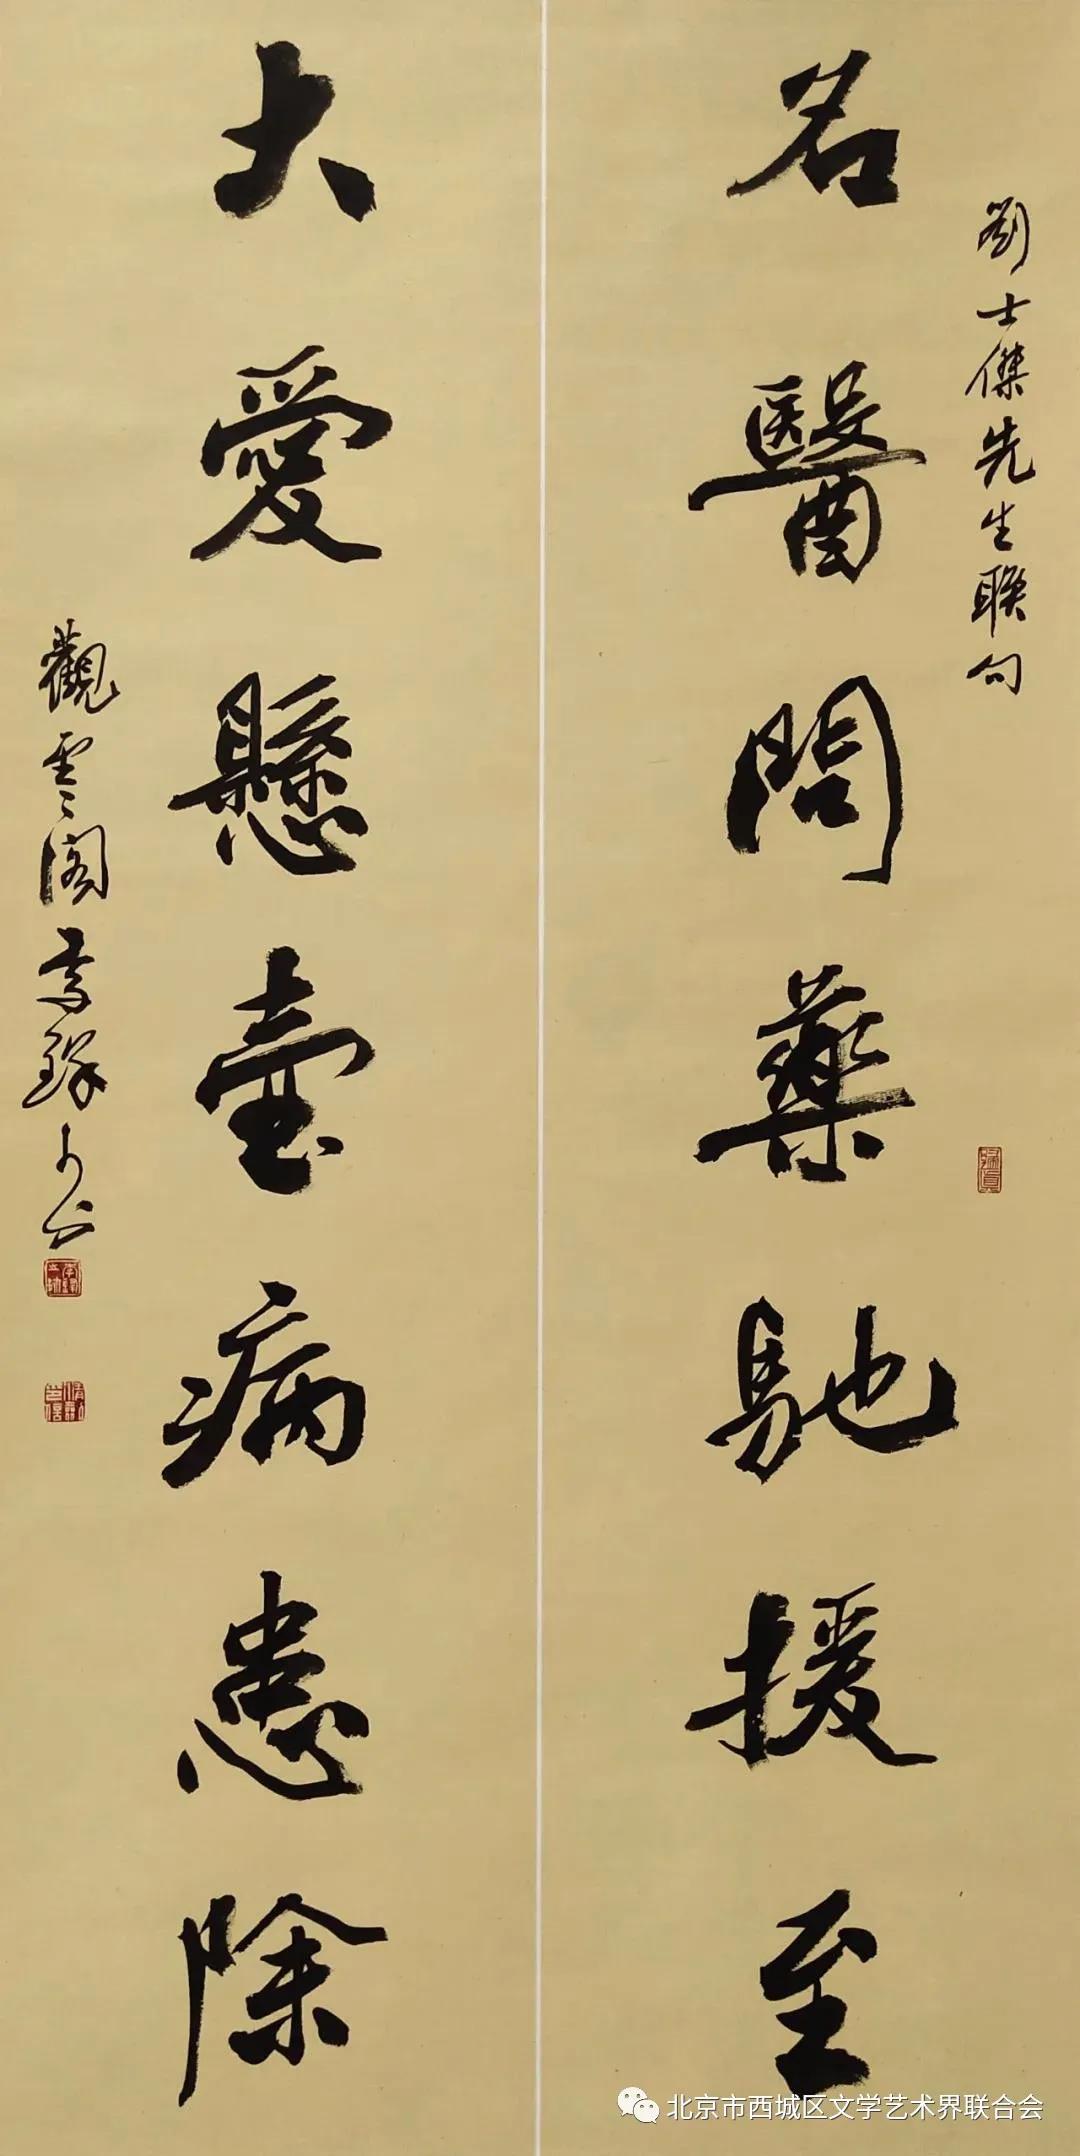 劉士傑先生聯句
名醫問藥馳援至
大愛懸壺病患除
觀雲閣
北京市西城区文学艺术界联合会